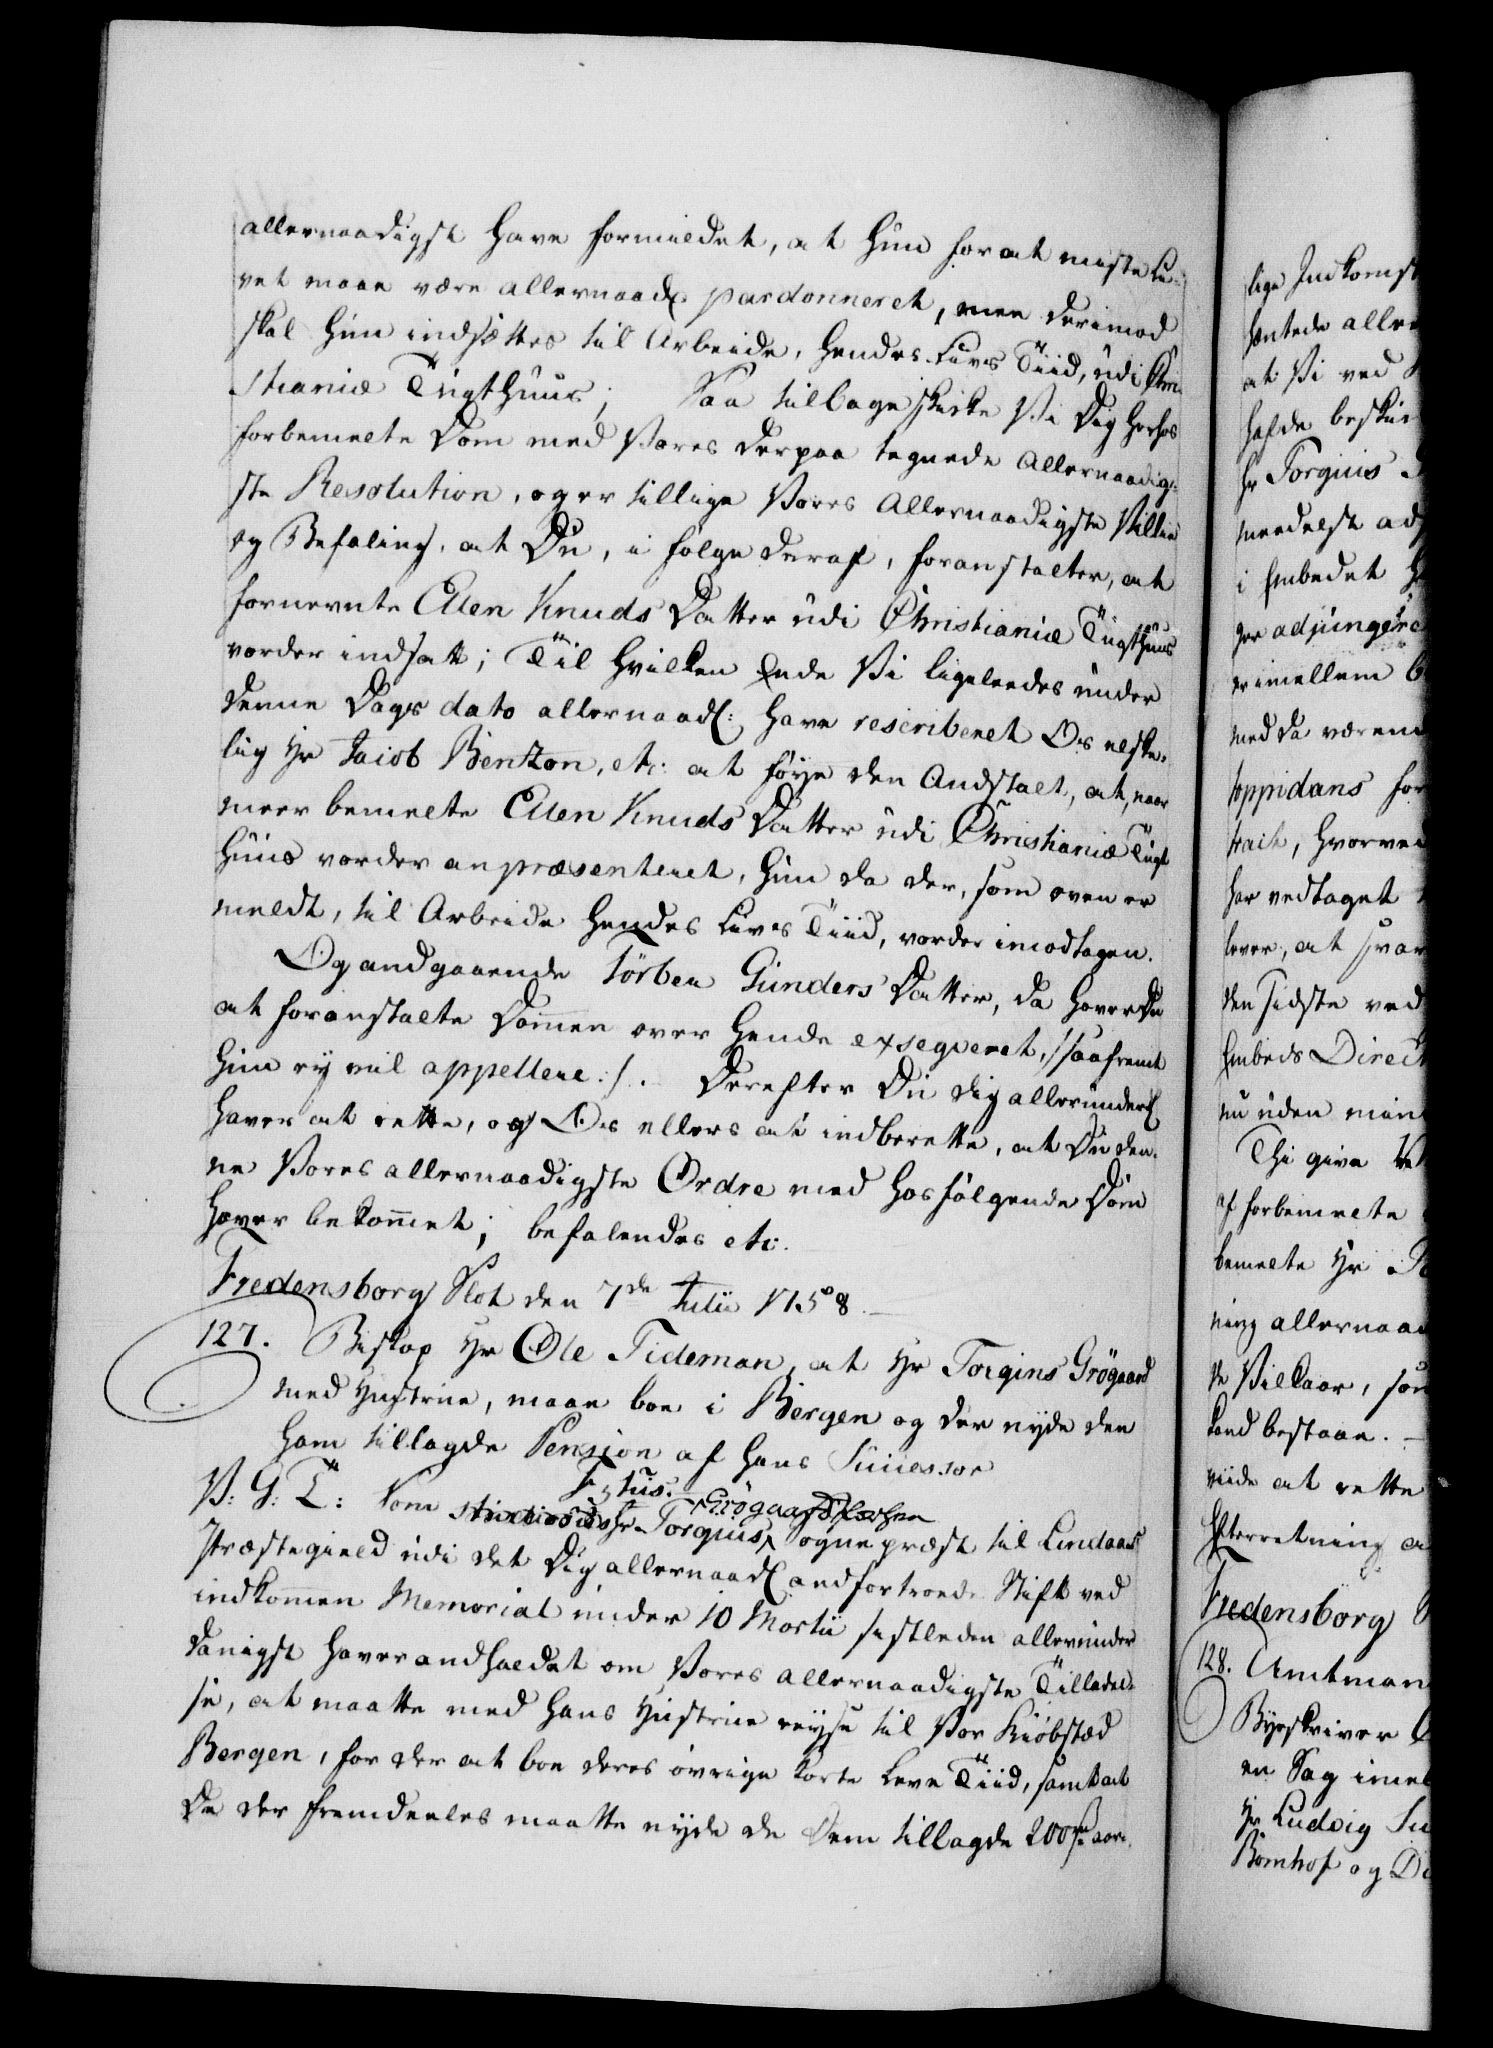 allernaadigst have formildet, at hun for at miste Li-
vet maae være allernaad: pardonneret, men derimod
skal hun indsættes til Arbeide, hendes Livs Tiid, udi Chri
stianiæ Tugthuus; Saa tilbageskikke Vi Dig herhos
forbemelte Dom med Vores derpaa tegnede Allernaadig-
ste Resolution, og er tillige Vores Allernaadigste Villie
og Befaling, at Du, i følge deraf, foranstalter, at
fornevnte Elen Knuds Datter udi Christianiæ Tugthuus
vorder indsatt; Til hvilken Ende Vi ligeleedes under
denne Dags dato allernaad: have rescriberet Os elske-
lig Hr Jacob Benzon, etc: at føye den Andstalt, at, naar
meerbemelte Elen Knuds Datter udi Christianiæ Tugt
huus vorder anpræsenteret, hun da der, som oven er
meldt, til Arbeide hendes Livs Tiid, vorder imodtagen.
Og andgaaende Törber Gunders Datter, da haver Du
at foranstalte Dommen over hende exseqveret, /:saafremt
hun ey vil appellere:/. Derefter Du dig allerunderd:
haver at rette, og Os ellers at indberette, at Du den-
ne Vores allernaadigste Ordre med hosfølgende Dom
haver bekommet; befalendes etc.
Fredensborg Slot den 7de Julii 1758.
127. Biskop Hr Ole Tideman, at Hr Torgius Grögaard
med Hustrue, maae boe i Bergen og der nyde den
ham tillagde Pension af hans Successor
V: G: T: Som Hr Torgius Grögaard Sogne præst til Lindaas
Præstegield udi det Dig allernaad: andfortroede Stift ved
indkommen Memorial under 10 Martii sistleden allerunder
danigst haver andholdet om Vores allernaadigste Tilladel-
se, at maatte med hans Hustrue reyse til Vor Kiøbstæd
Bergen, for der at boe deres øvrige korte Leve Tiid, samt at
De der fremdeeles maatte nyde de Dem tillagde 200 rd aar-
lige Indkomst
hentede aller
at Vi ved
hafde beskik
Hr Torgius
meedelst ad
i Embedet
ger adjungere
er imellem
med da væren
toppidans for
tract, hvorved
har vedtaget
lever, at svar
den sidste ved
Embeds Direct
nu uden min
Thi give
af forbemelte
bemelte Hr
ning allernaa
de Vilkaar, som
kand bestaae.
viide at rette
Efterretning
Fredensborg
128. Amtman
Byeskriver
en Sag imel
Hr Ludvig
Bomhof og